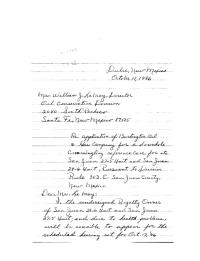 Dulce, New Mexico
October 11, 1996
Mr. William J. LeMay, Director
Oil Conservation Division
2040 South Pacheco
Santa Fe, New Mexico 87505
Re: application of Burlington Oil
& Gas Company for a downhole
Commingling reference case for its
San Juan 27-5 Unit and San Juan
28-6 Unit, Pursuant to Division
Rule 303.E. San Juan County,
New Mexico
Dear Mr. Le May:
I, the undersigned Royalty Owner
of San Juan 28-6 Unit and San Juan
27-5 Unit and due to health problems,
will be unable to appear for the
scheduled hearing set for Oct 17, 96